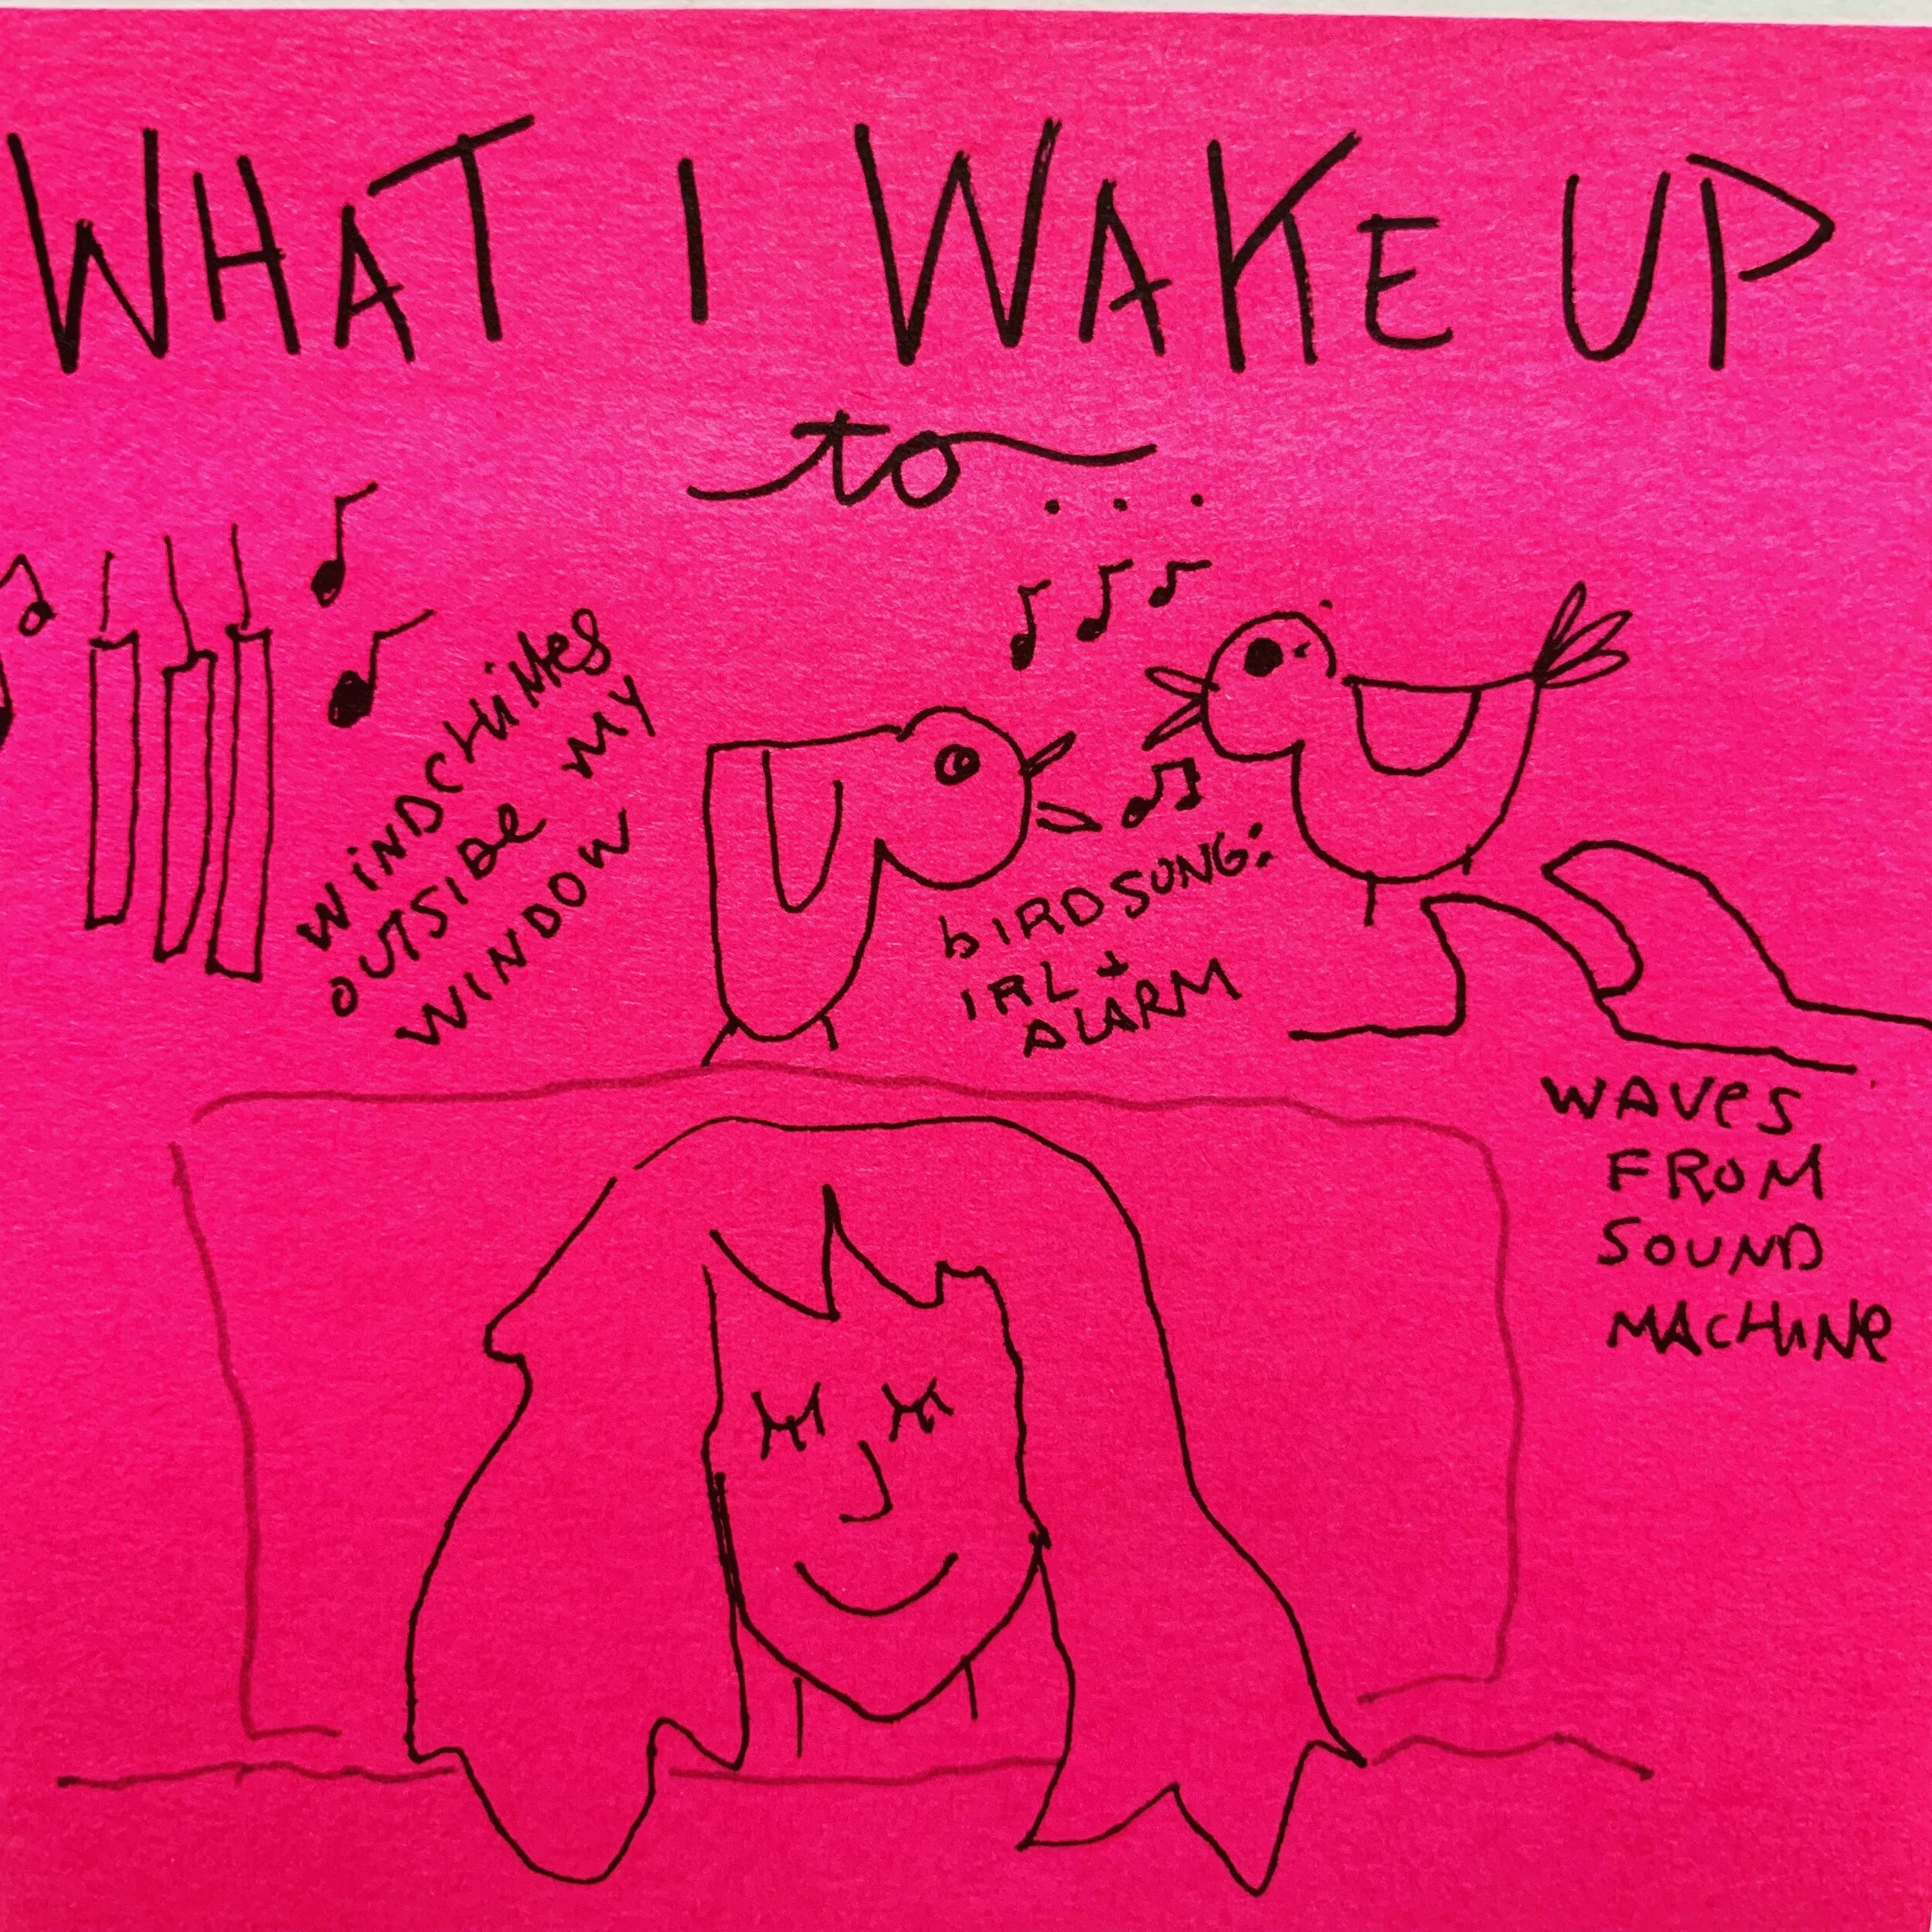 WHAT I WAKE UP
to...
WINDCHIMES
OUTSIDE MY
WINDOW
BIRDSONG:
IRL +
ALARM
WAVES
FROM
SOUND
MACHINE